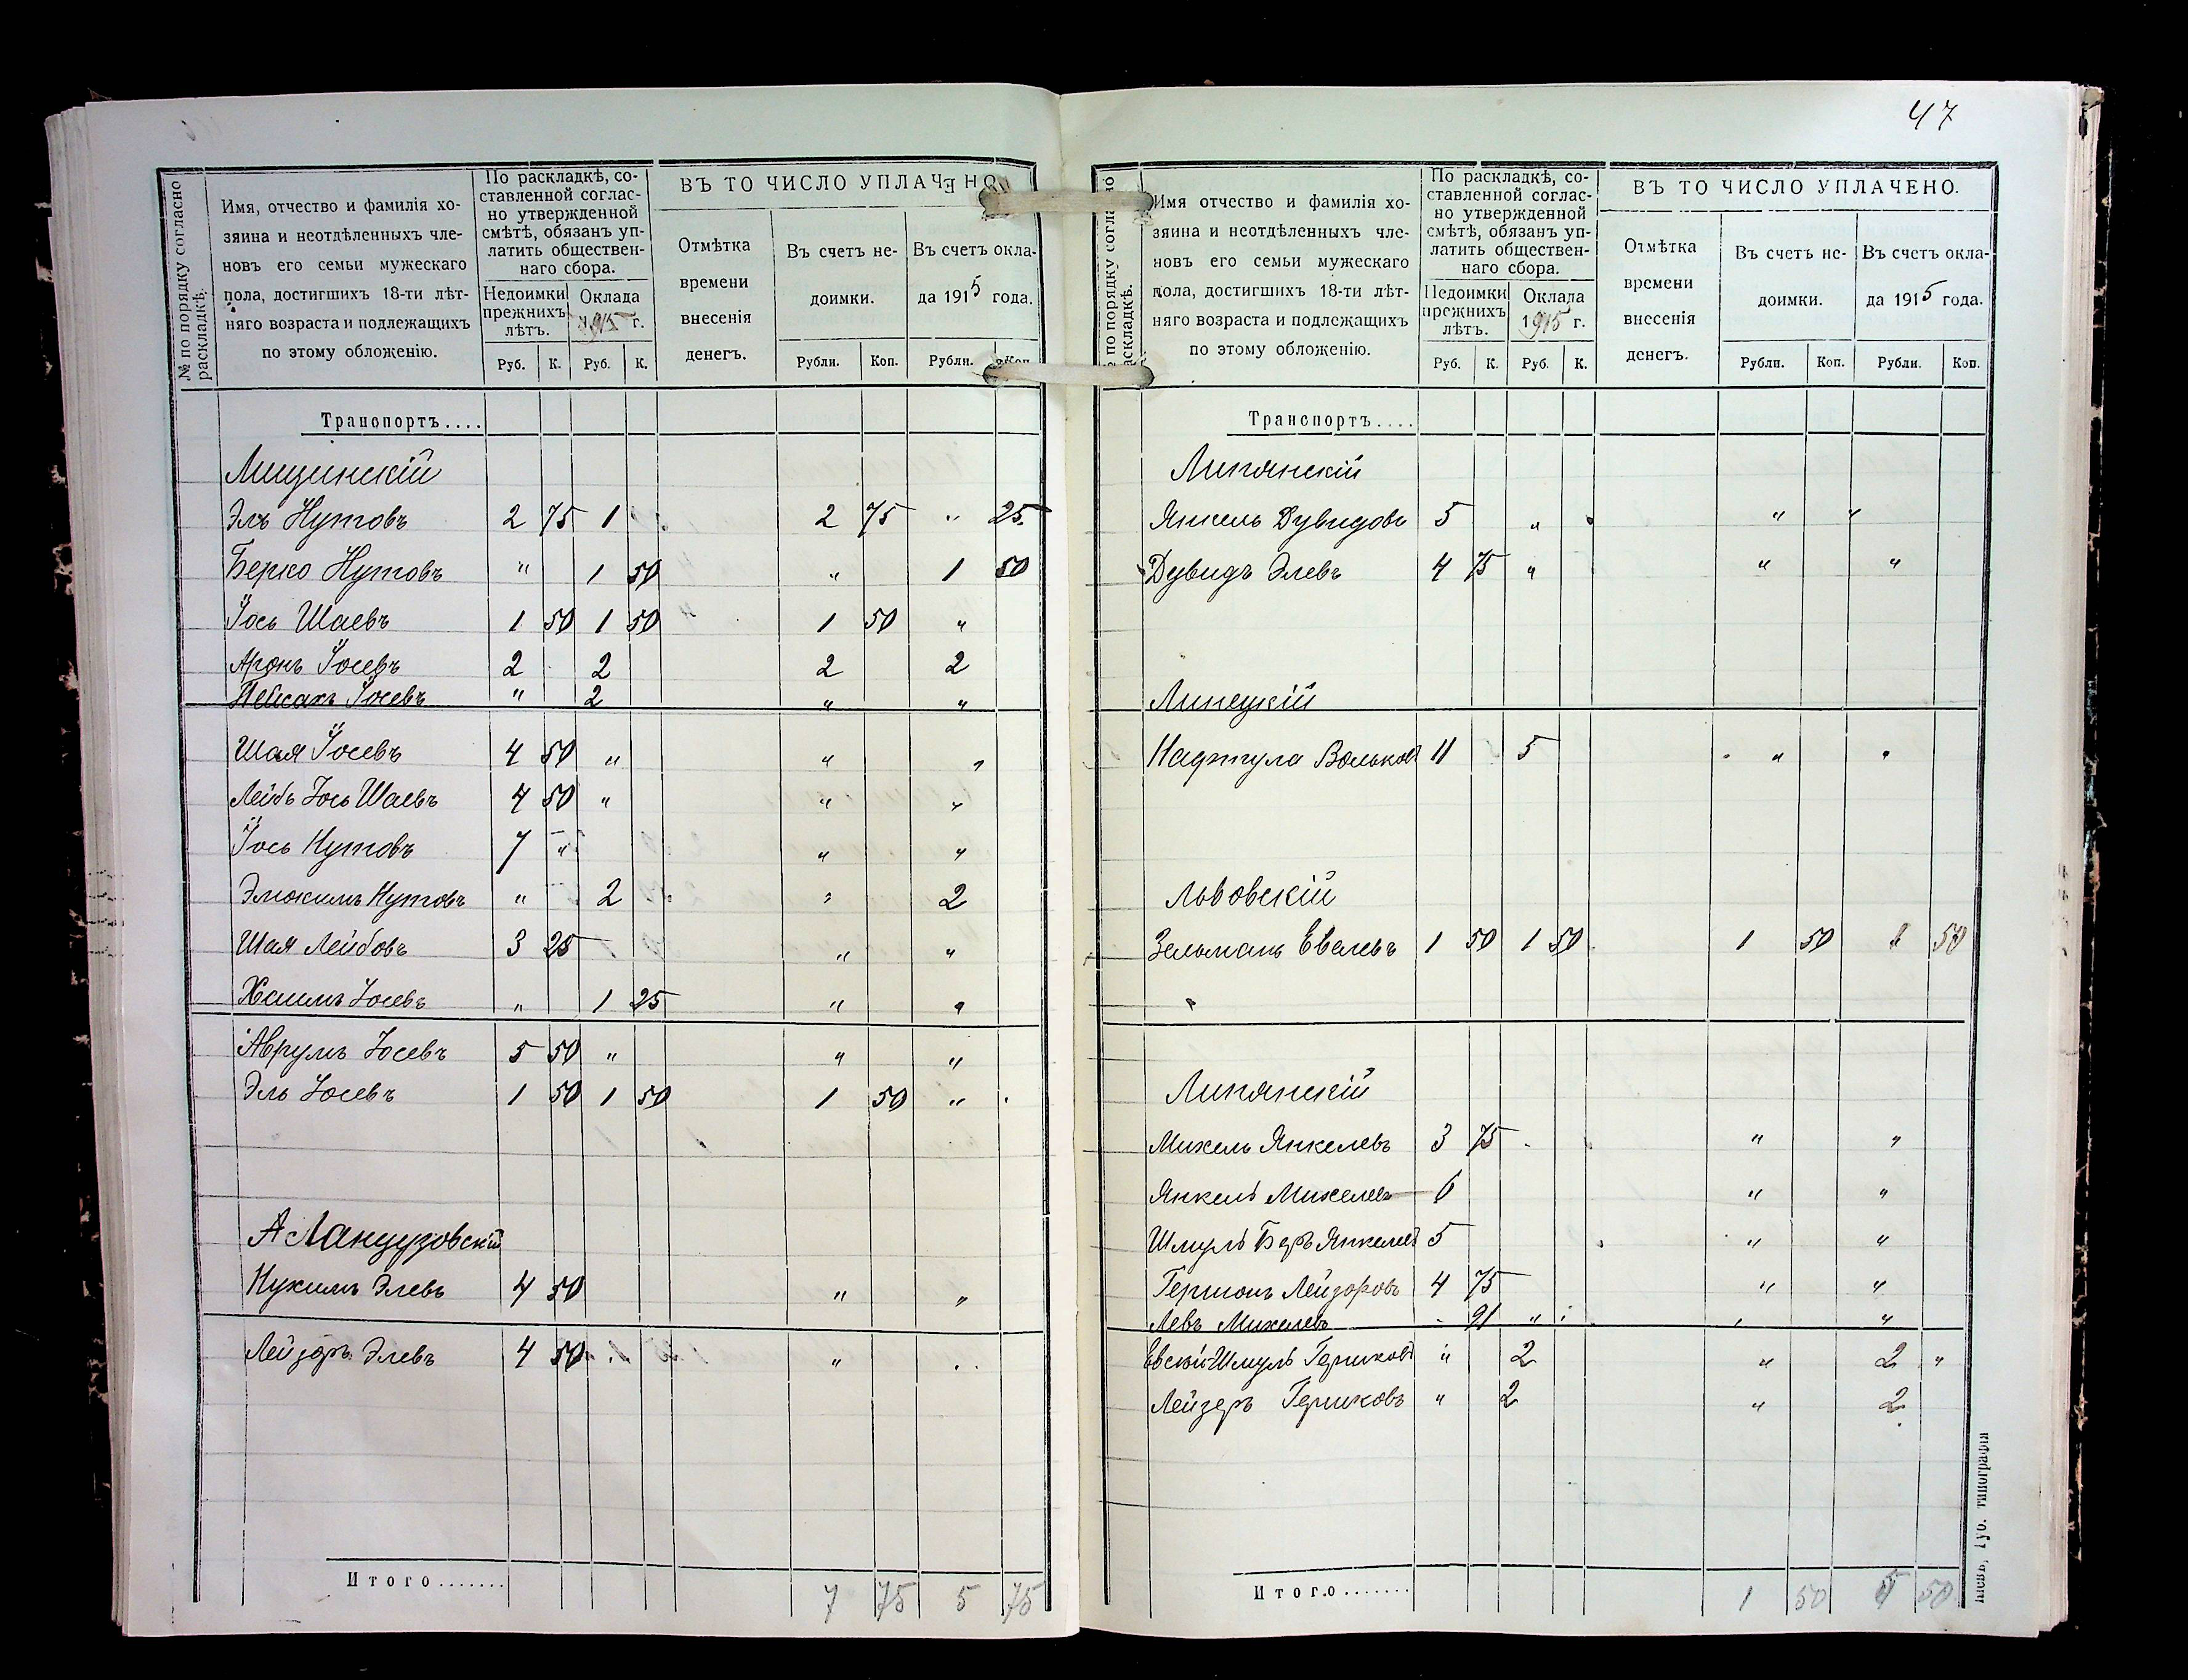 47
№ по порядку согласно раскладкѣ.
Имя, отчество и фамилія хо-
зяина и неотдѣленныхъ чле-
новъ его семьи мужескаго
пола, достигшихъ 18-ти лѣт-
няго возраста и подлежащихъ
по этому обложенію.
По раскладкѣ, со-
ставленной соглас-
но утвержденной
смѣтѣ, обязанъ уп-
латить обществен-
наго сбора.
Недоимки прежнихъ лѣтъ.
Оклада 1915 г.
Руб. К. Руб. К.
ВЪ ТО ЧИСЛО УПЛАЧЕНО
Отмѣтка
времени
внесенія
денегъ.
Въ счетъ не-
доимки.
Въ счетъ окла-
да 1915 года.
Рубли. Коп. Рубли. Коп.
Транопортъ....
Лищинскій
Эль Нутовъ 2 75 1 2 75 " 25
Берко Нутовъ " 1 50 " 1 50
Іось Шаевъ 1 50 1 50 1 50 "
Аронъ Іосевъ 2 2 2 2
Пейсахъ Іосевъ " 2 " "
Шая Іосевъ 4 50 " " "
Лейбъ Іось Шаевъ 4 50 " " "
Іось Нутовъ 7 " " "
Элюкимъ Нутовъ " 2 " 2
Шая Лейбовъ 3 25 " "
Хаимъ Іосевъ " 1 25 " "
Аврумъ Іосевъ 5 50 " " "
Эль Іосевъ 1 50 1 50 1 50 "
Нухимъ Элевъ 4 50 " "
Лейзоръ Элевъ 4 50 "
Итого....... 7 75 5 75
№ по порядку согласно раскладкѣ.
Имя отчество и фамилія хо-
зяина и неотдѣленныхъ чле-
новъ его семьи мужескаго
пола, достигшихъ 18-ти лѣт-
няго возраста и подлежащихъ
по этому обложенію.
По раскладкѣ, со-
ставленной соглас-
но утвержденной
смѣтѣ, обязанъ уп-
латить обществен-
наго сбора.
Недоимки прежнихъ лѣтъ.
Оклада 1915 г.
Руб. К. Руб. К.
ВЪ ТО ЧИСЛО УПЛАЧЕНО.
Отмѣтка
времени
внесенія
денегъ.
Въ счетъ не-
доимки.
Въ счетъ окла-
да 1915 года.
Рубли. Коп. Рубли. Коп.
Транспортъ....
Липянскій
Янкель Дувидовъ 5 " " "
Дувидъ Элевъ 4 75 " " "
Липецкій
Нафтула Вольковъ 11 5 " "
Львовскій
Зельманъ Евелевъ 1 50 1 50 1 50 1 50
Липянскій
Михель Янкелевъ 3 75 " "
Янкель Михелевъ 6 " "
Шмуль Беръ Янкелевъ 5 " "
Гершонъ Лейзоровъ 4 75 " "
Левъ Михелевъ 91 " " "
Евсей-Шмуль Гершковъ " 2 " 2 "
Лейзеръ Гершковъ " 2 " 2
Итого....... 1 50 5 50
Кіевъ, Губ. типографія